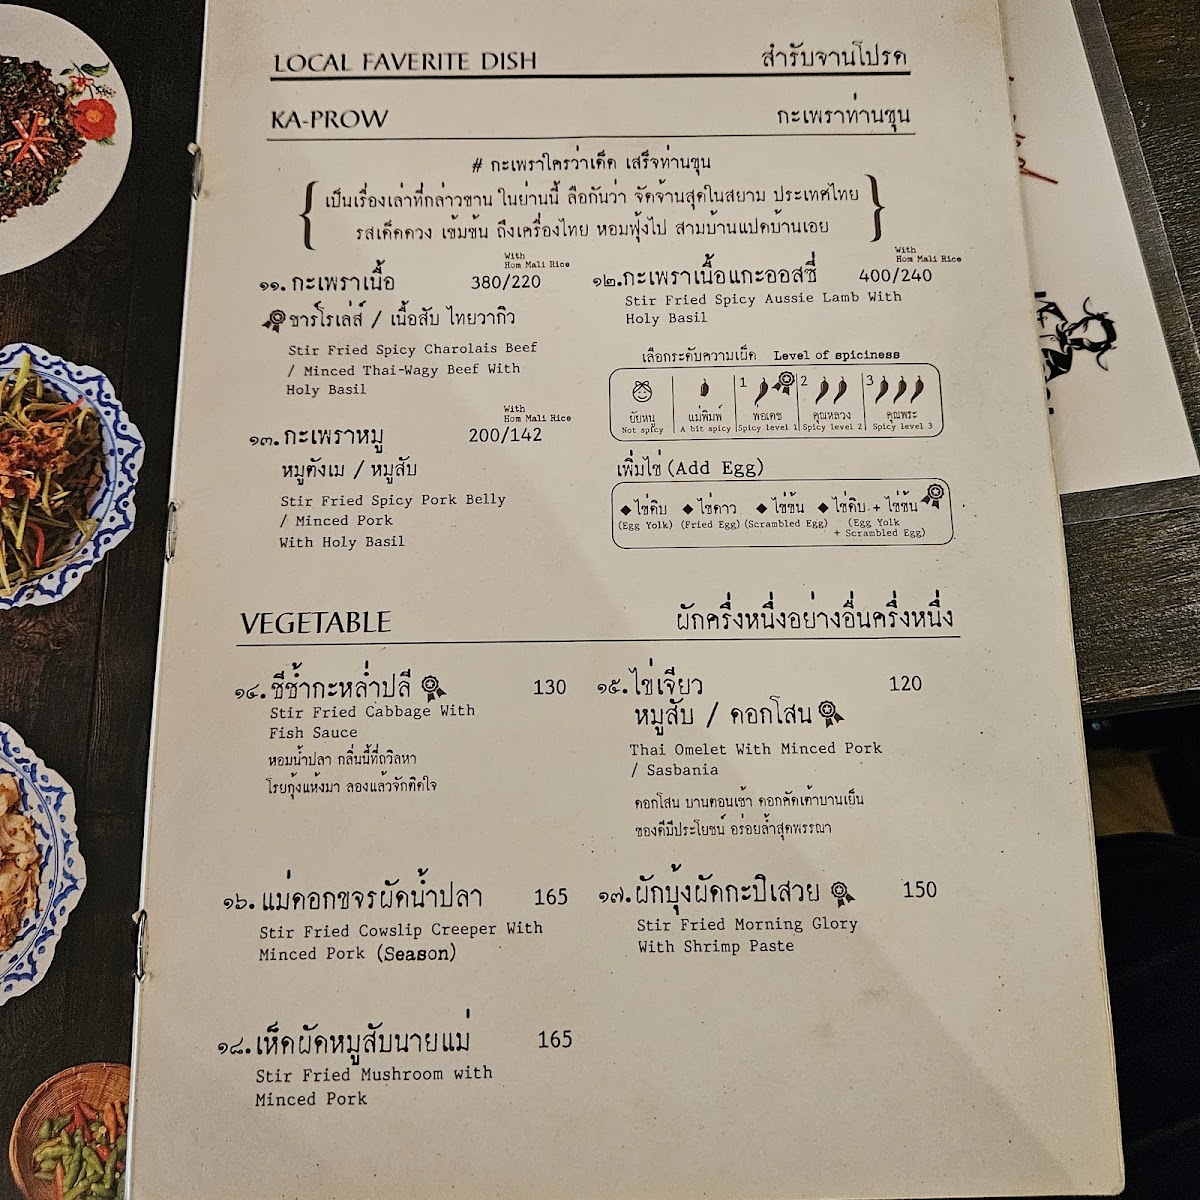 LOCAL FAVERITE DISH สำรับจานโปรด
KA-PROW กะเพราท่านขุน
# กะเพราใครว่าเด็ด เสร็จท่านขุน
เป็นเรื่องเล่าที่กล่าวขาน ในย่านนี้ ลือกันว่า จัดจ้านสุดในสยาม ประเทศไทย
รสเด็ดดวง เข้มข้น ถึงเครื่องไทย หอมฟุ้งไป สามบ้านแปดบ้านเอย
With
Hom Mali Rice
๑๑. กะเพราเนื้อ 380/220
ชาร์โรเล่ส์ / เนื้อสับ ไทยวากิว
Stir Fried Spicy Charolais Beef
/ Minced Thai-Wagy Beef With
Holy Basil
With
Hom Mali Rice
๑๒. กะเพราเนื้อแกะออสซี่ 400/240
Stir Fried Spicy Aussie Lamb With
Holy Basil
With
Hom Mali Rice
๑๓. กะเพราหมู 200/142
หมูตังเม / หมูสับ
Stir Fried Spicy Pork Belly
/ Minced Pork
With Holy Basil
เลือกระดับความเผ็ด Level of spiciness
1 2 3
ยัยหนู แม่พิมพ์ พ่อเดช คุณหลวง คุณพระ
Not spicy A bit spicy Spicy level 1 Spicy level 2 Spicy level 3
เพิ่มไข่ (Add Egg)
◆ ไข่ดิบ ◆ ไข่ดาว ◆ ไข่ข้น ◆ ไข่ดิบ + ไข่ข้น
(Egg Yolk) (Fried Egg) (Scrambled Egg) (Egg Yolk
+ Scrambled Egg)
VEGETABLE ผักครึ่งหนึ่งอย่างอื่นครึ่งหนึ่ง
๑๔. ชีช้ำกะหล่ำปลี 130
Stir Fried Cabbage With
Fish Sauce
หอมน้ำปลา กลิ่นนี้ที่ถวิลหา
โรยกุ้งแห้งมา ลองแล้วจักติดใจ
๑๕. ไข่เจียว 120
หมูสับ / ดอกโสน
Thai Omelet With Minced Pork
/ Sasbania
ดอกโสน บานตอนเช้า ดอกคัดเค้าบานเย็น
ของดีมีประโยชน์ อร่อยล้ำสุดพรรณา
๑๖. แม่ดอกขจรผัดน้ำปลา 165
Stir Fried Cowslip Creeper With
Minced Pork (Season)
๑๗. ผักบุ้งผัดกะปิเสวย 150
Stir Fried Morning Glory
With Shrimp Paste
๑๘. เห็ดผัดหมูสับนายแม่ 165
Stir Fried Mushroom with
Minced Pork